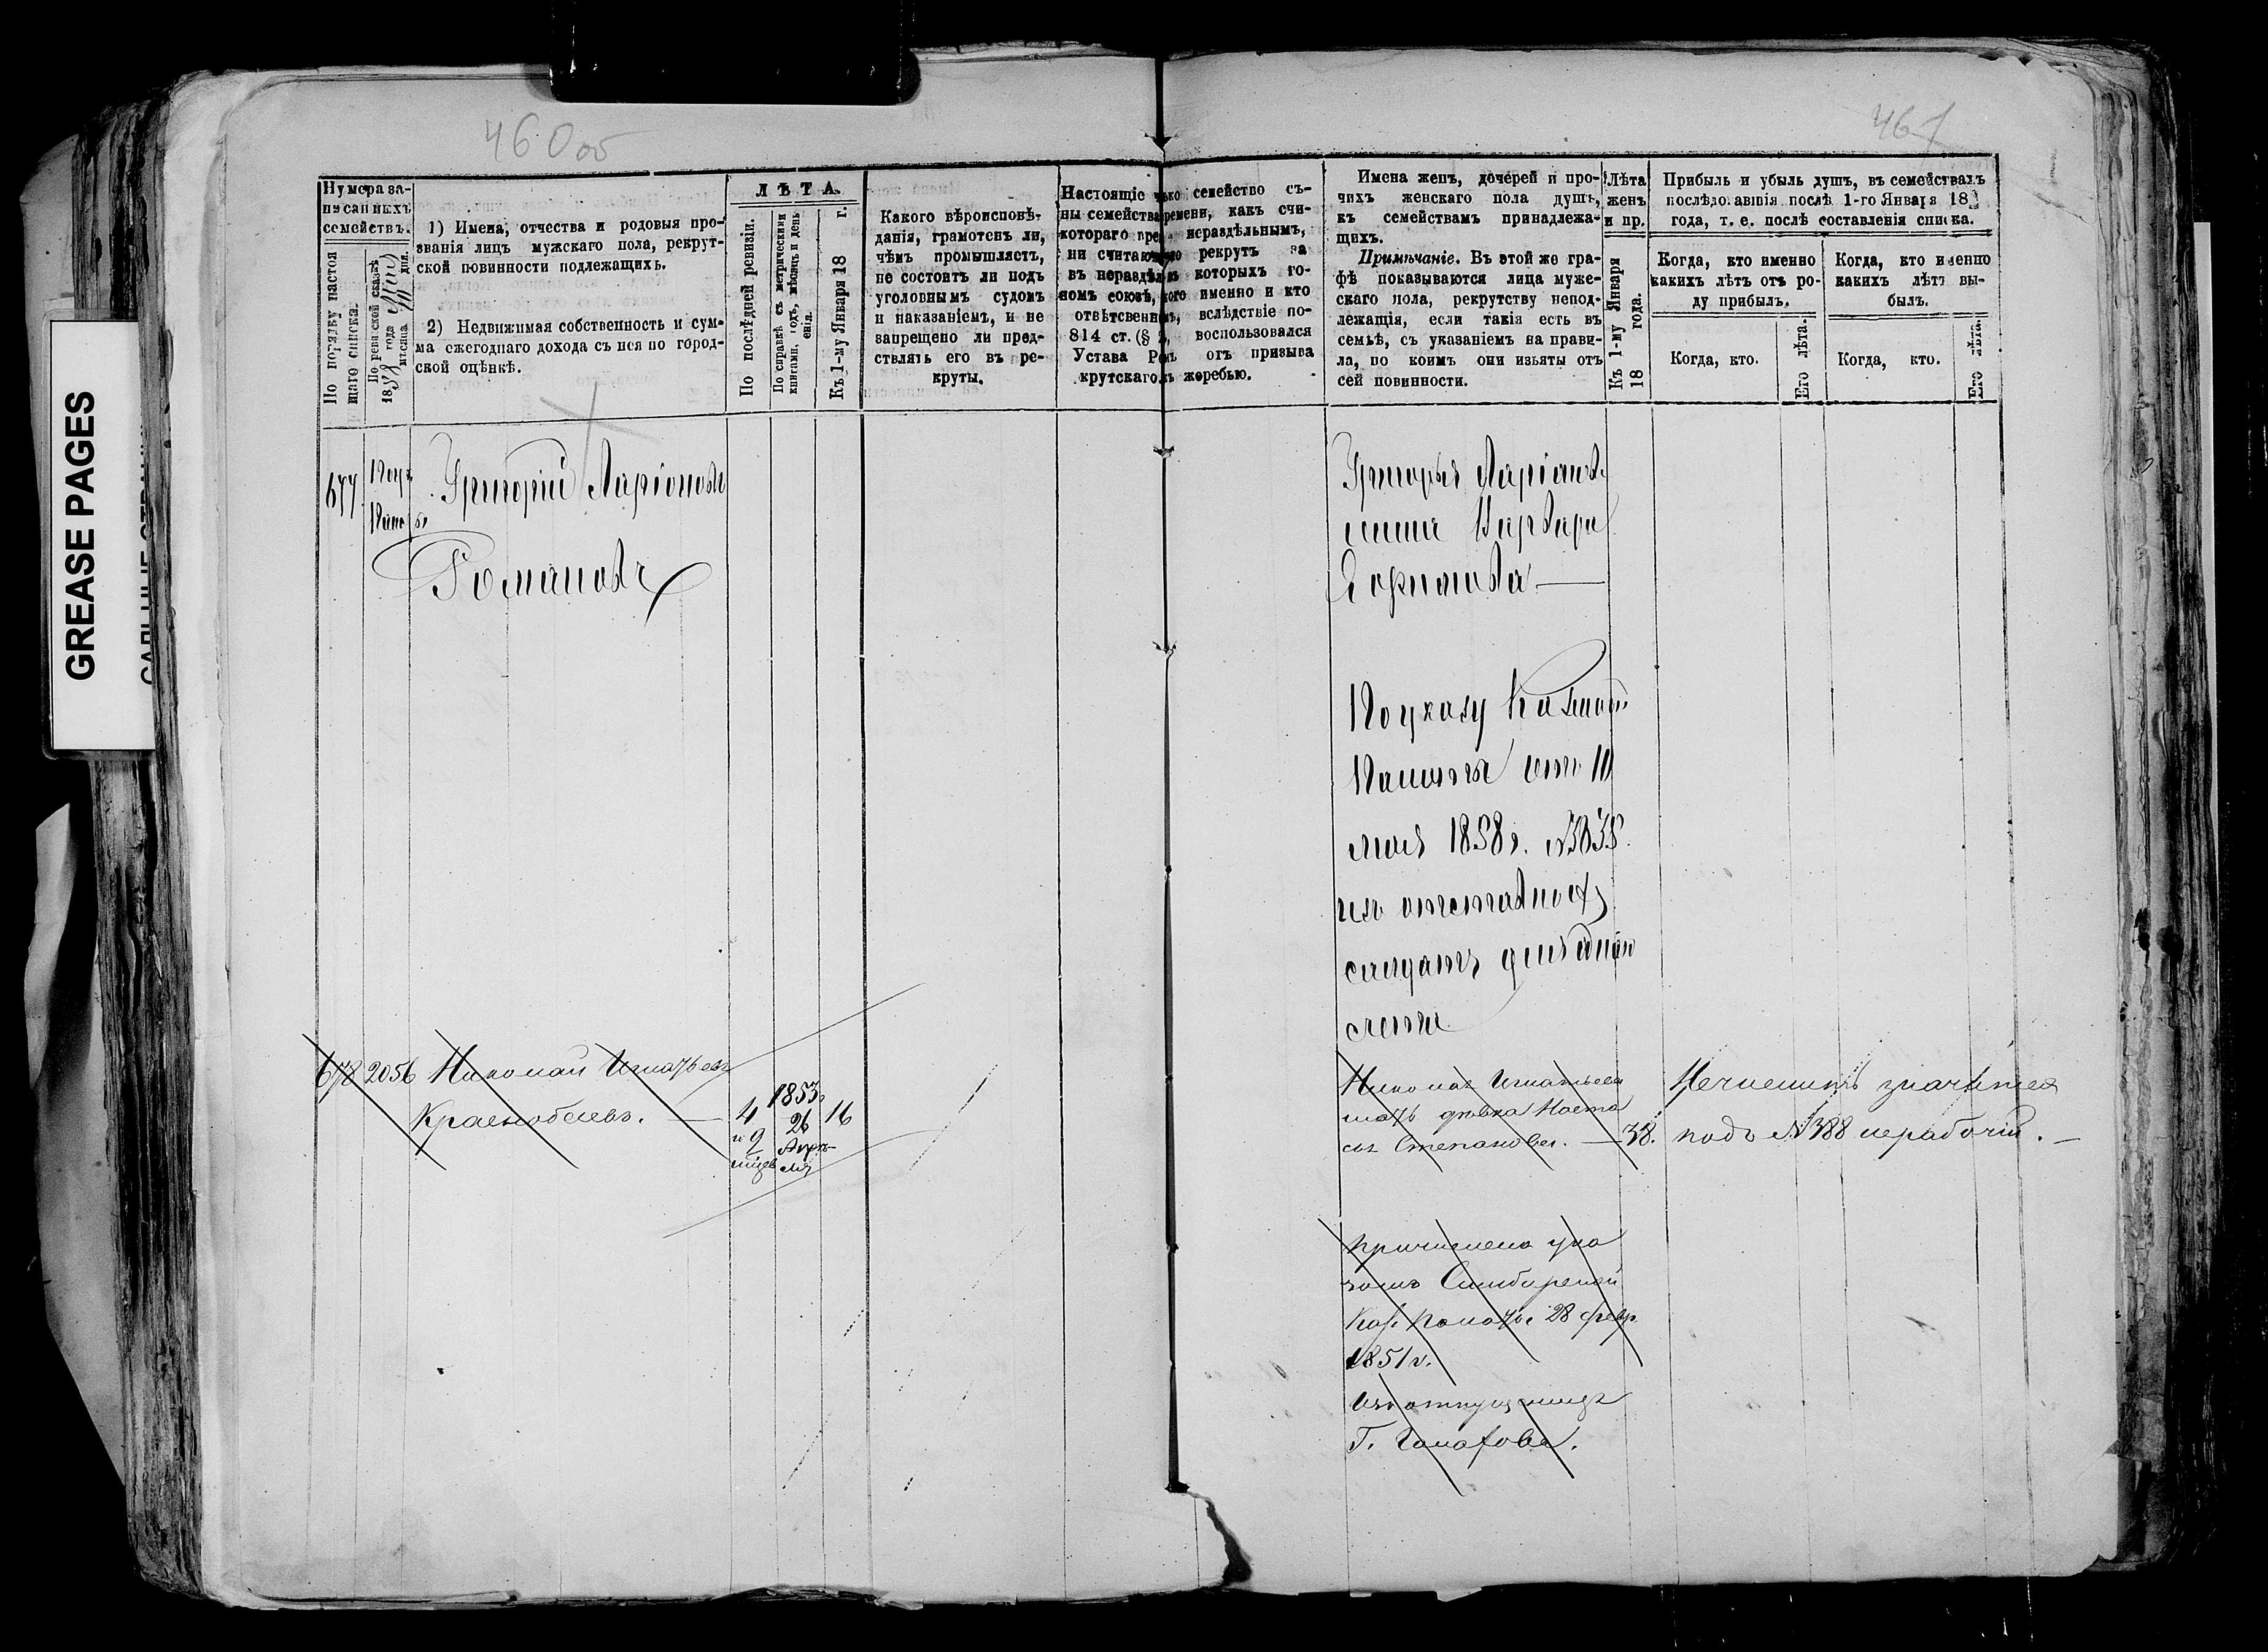 460об
461
GREASE PAGES
Нумера за-
писанныхъ
семействъ.
По порядку настоя
щаго списка.
По ревизской сказкѣ
1858 года
мѣсяца 10 дня.
1) Имена, отчества и родовыя про-
званія лицъ мужскаго пола, рекрут-
ской повинности подлежащихъ.
2) Недвижимая собственность и сум-
ма ежегоднаго дохода съ нея по город-
ской оцѣнкѣ.
ЛѢТА.
По послѣдней ревизіи.
По справкѣ съ метрическими
книгами, годъ, мѣсяцъ и день
енія.
Къ 1-му Января 18 г.
Какого вѣроисповѣ-
данія, грамотенъ ли,
чѣмъ промышляетъ,
не состоитъ ли подъ
уголовнымъ судомъ
и наказаніемъ, и не
запрещено ли пред-
ствлять его въ ре-
круты.
Настоящіе
ны семейства
котораго пре
ни считаю
въ нераздѣл
номъ союзѣ,
отвѣтсвенн
814 ст. (§
Устава Р
крутскаго
ько семейство съ-
ремени, какъ счи-
нераздѣльнымъ,
рекрутъ за
которыхъ го-
кого именно и кто
вслѣдствіе по-
воспользовался
отъ призыва
жеребью.
Имена женъ, дочерей и про-
чихъ женскаго пола душъ,
къ семействамъ принадлежа-
щихъ.
Примѣчаніе. Въ этой же гра-
фѣ показываются лица муже-
скаго пола, рекрутству непод-
лежащія, если такія есть въ
семьѣ, съ указаніемъ на прави-
ла, по коимъ они изъяты отъ
сей повинности.
Лѣта
женъ
и пр.
Къ 1-му Января
18 года.
Прибыль и убыль душъ, въ семействахъ
послѣдовавшія послѣ 1-го Января 18
года, т. е. послѣ составленія списка.
Когда, кто именно
какихъ лѣтъ отъ ро-
ду прибылъ.
Когда, кто.
Его лѣта.
Когда, кто именно
какихъ лѣтъ вы-
былъ.
Когда, кто.
Его лѣта.
677
Григорій Ларіоновъ
Романовъ
Григорья Ларіонова
жена Варвара
По указу Казенной
Палаты отъ 10
мая 1858 г. №3835
изъ отставныхъ
солдатъ
678 2056 Николай Игнатьевъ
Краснобаевъ. — 4 1853 16
и 9 26
мѣсяц Апрѣ-
ля
Николая Игнатьева
мать дѣвка Наста
сья Степанова. — 38.
Исчисленіемъ значится
подъ №388 нерабочій. —
Причислена ука
зомъ Симбирской
Каз. Палаты 28 февр.
1851 г.
Изъ отпущенницъ